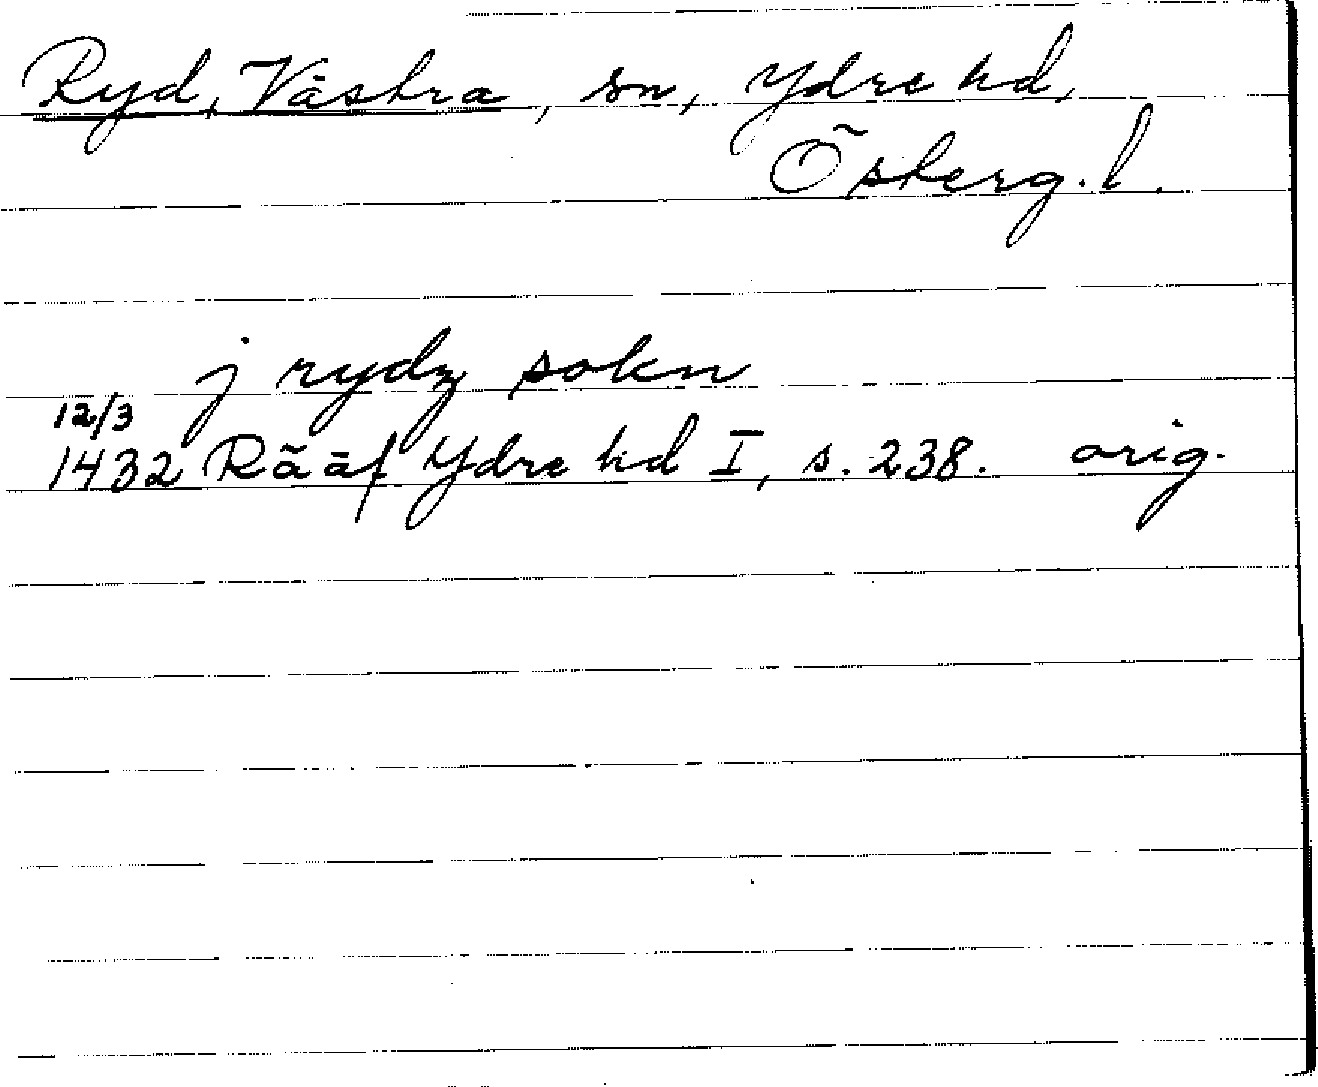 Ryd, Västra, sn, Ydre hd,
Österg. l.
j rydz sokn
12/3
1432 Rääf Ydre hd I, s. 238. orig.